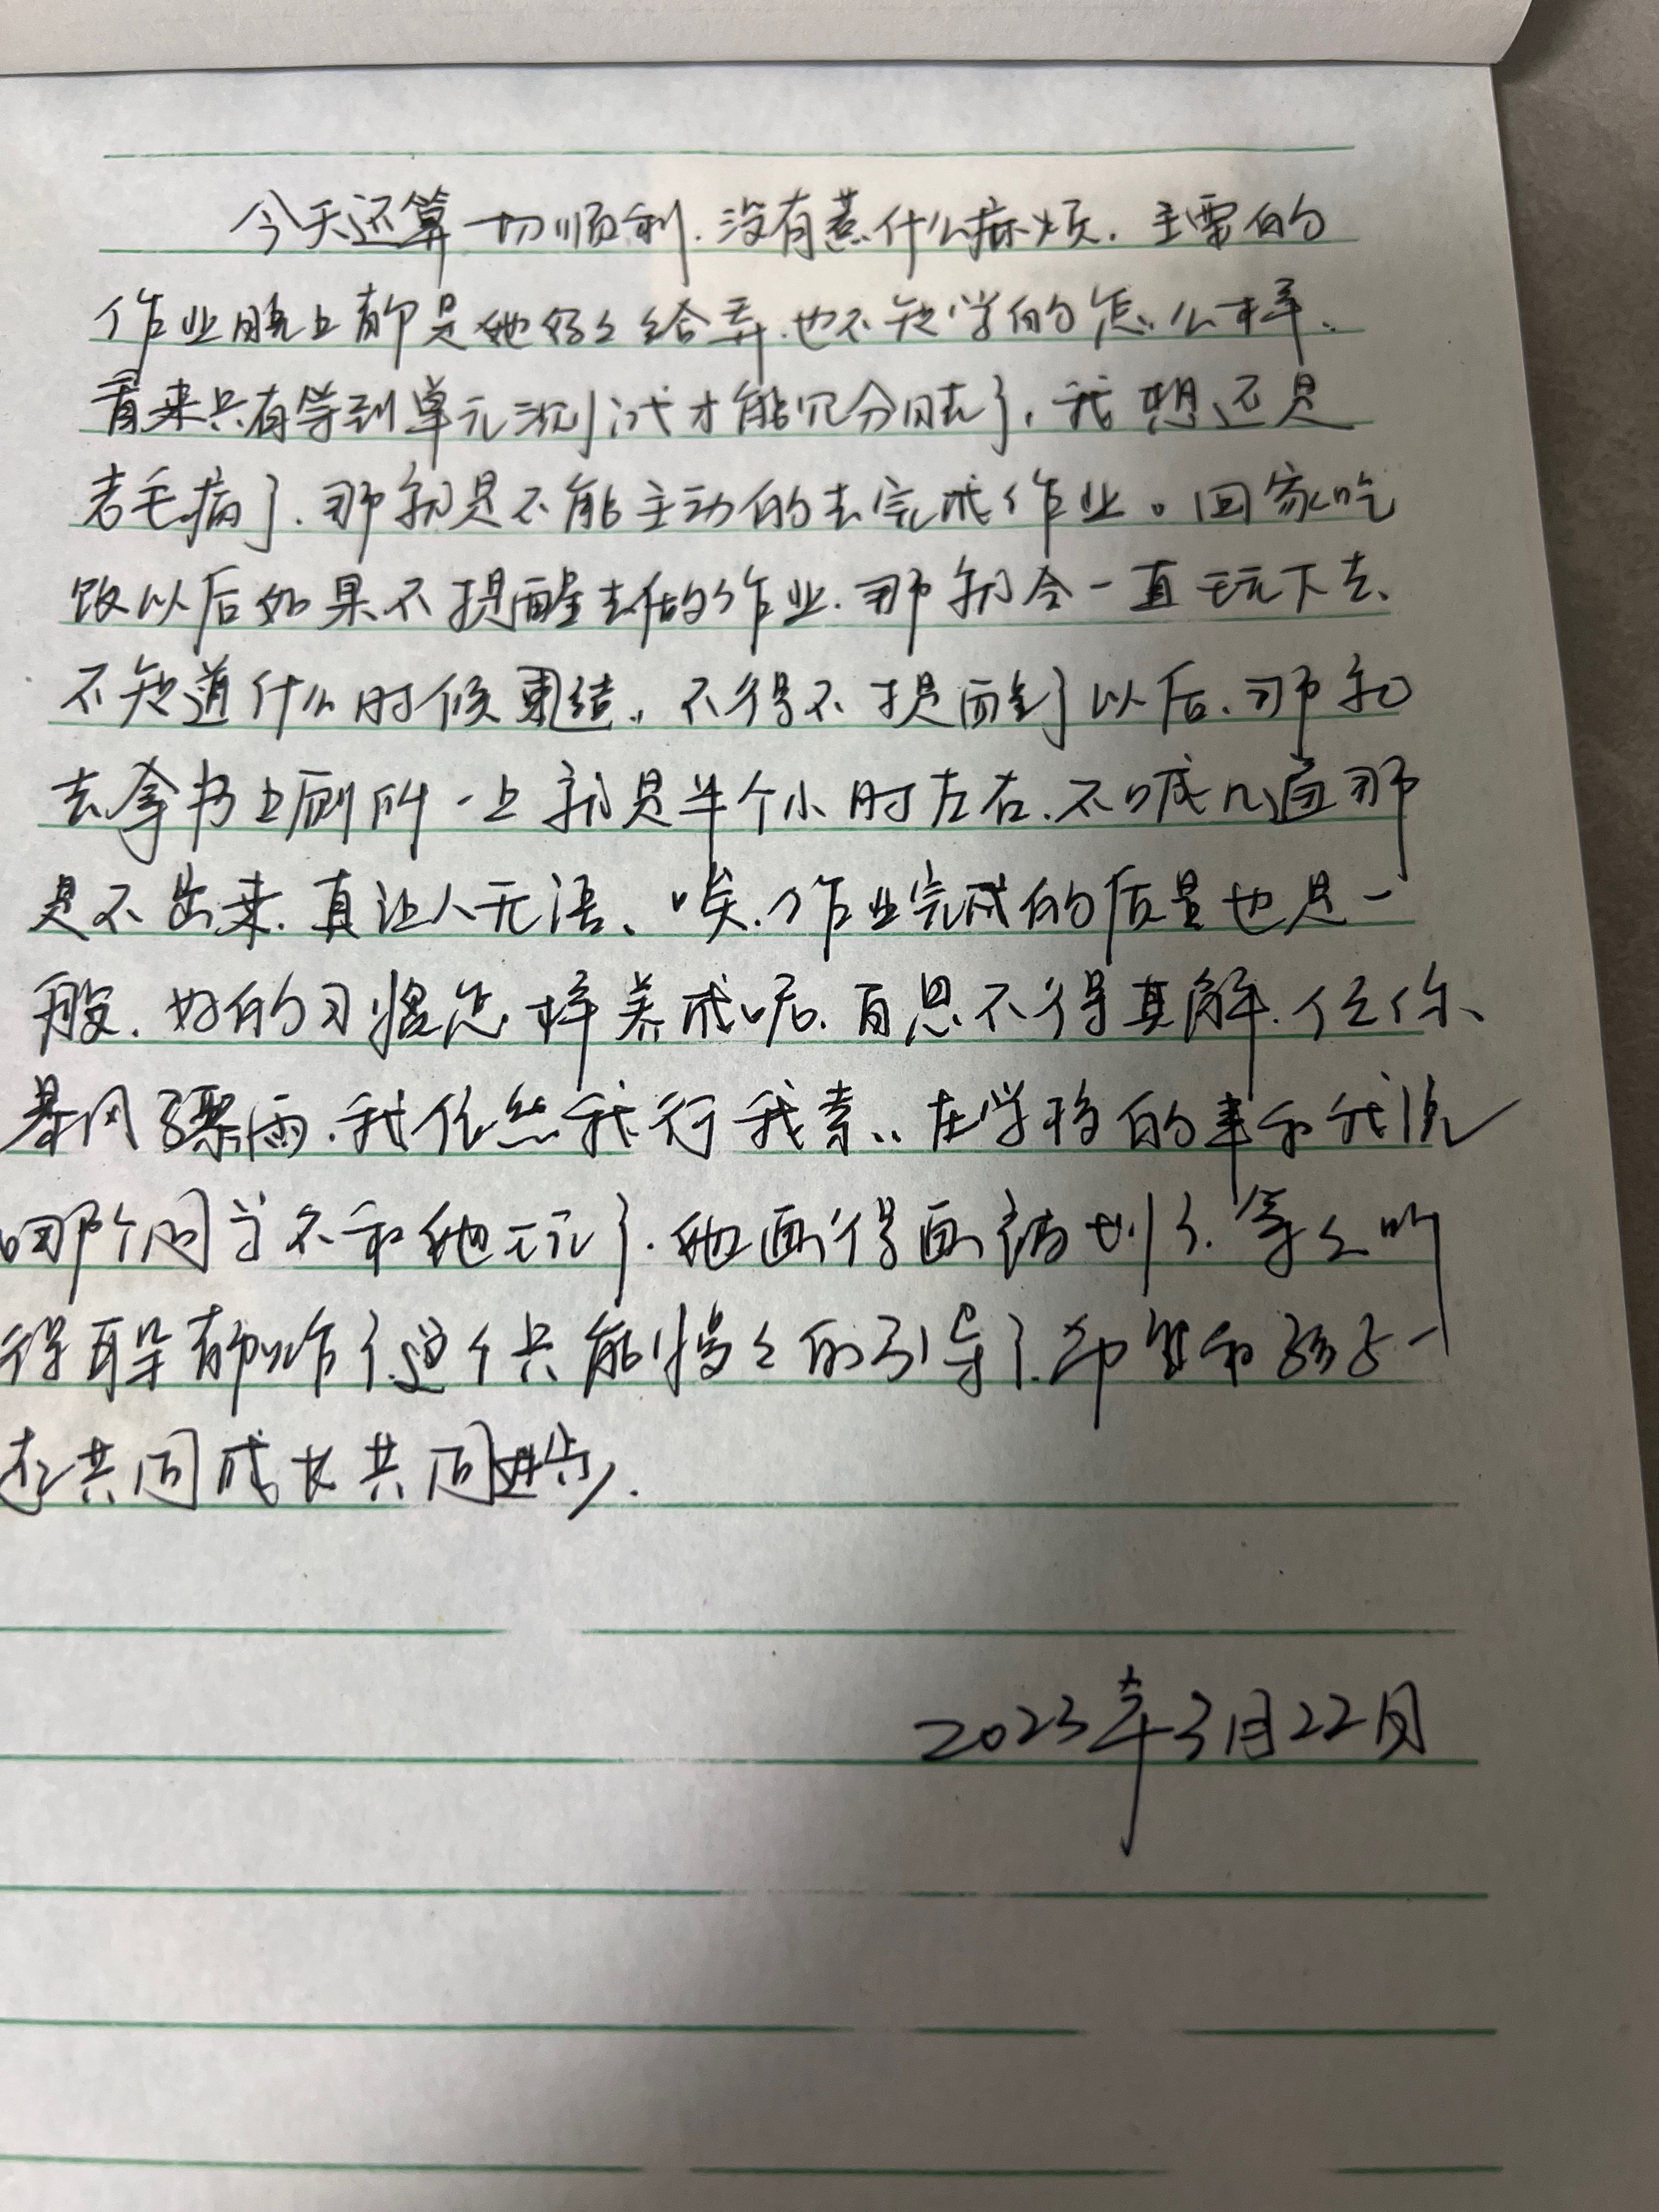 今天还算一切顺利.没有惹什么麻烦.主要的
作业晚上都是她妈妈给弄.也不知学的怎么样.
看来只有等到单元测试才能见分晓了,我想还是
老毛病了.那就是不能主动的去完成作业。回家吃
饭以后如果不提醒去做作业.那就会一直玩下去、
不知道什么时候结.不得不提醒了以后.那就
去拿书上厕所一上就是半个小时左右.不喊几遍那
是不出来.真让人无语、唉.作业完成的质量也是一
般.好的习惯怎样养成呢.百思不得其解.任你、
暴风骤雨.我任然我行我素..在学校的事和我说
哪个同学不和她玩了.她画得画被划了.等等听
得耳朵都炸了.这个只能慢慢的引导了.希望和孩子一
起共同成长共同进步.
2023年3月22日